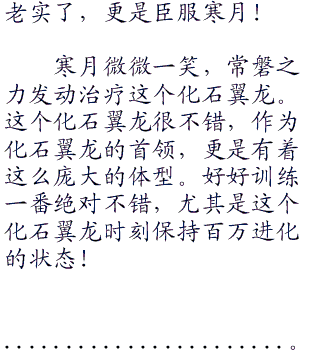 老实了，更是臣服寒月！
寒月微微一笑，常磐之
力发动治疗这个化石翼龙。
这个化石翼龙很不错，作为
化石翼龙的首领，更是有着
这么庞大的体型。好好训练
一番绝对不错，尤其是这个
化石翼龙时刻保持百万进化
的状态！
．．．．．．．．．．．．．．．．．．．．．．．。